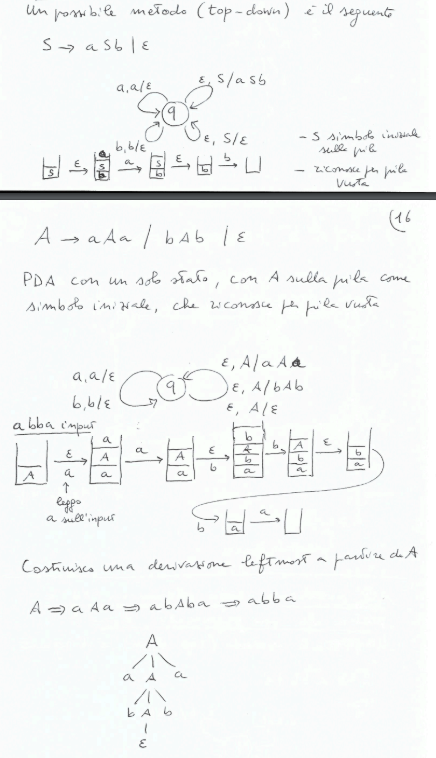 Un possibile metodo (top-down) è il seguente
S → a S b | ε
a,a/ε
ε, S/a S b
q
b,b/ε
ε, S/ε
- S simbolo iniziale sulla pila
- riconosce per pila vuota
S ε a S b a S b ε b b
(16
A → a A a / b A b | ε
PDA con un solo stato, con A sulla pila come
simbolo iniziale, che riconosce per pila vuota
ε, A/a A a
a,a/ε
q
ε, A/b A b
b,b/ε
ε, A/ε
abba input
A ε a a A a a A a ε b b A b a b A b a ε b a
↑
leggo
a sull'input
b a a
Costruisco una derivazione leftmost a partire da A
A ⇒ a A a ⇒ a b A b a ⇒ a b b a
A
a A a
b A b
ε